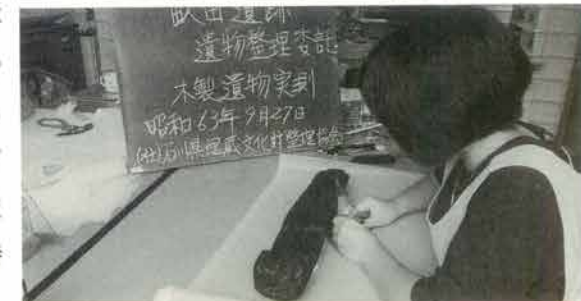 畝田遺跡
遺物整理委託
木製遺物実測
昭和63年9月27日
(社)石川県埋蔵文化財整理協会